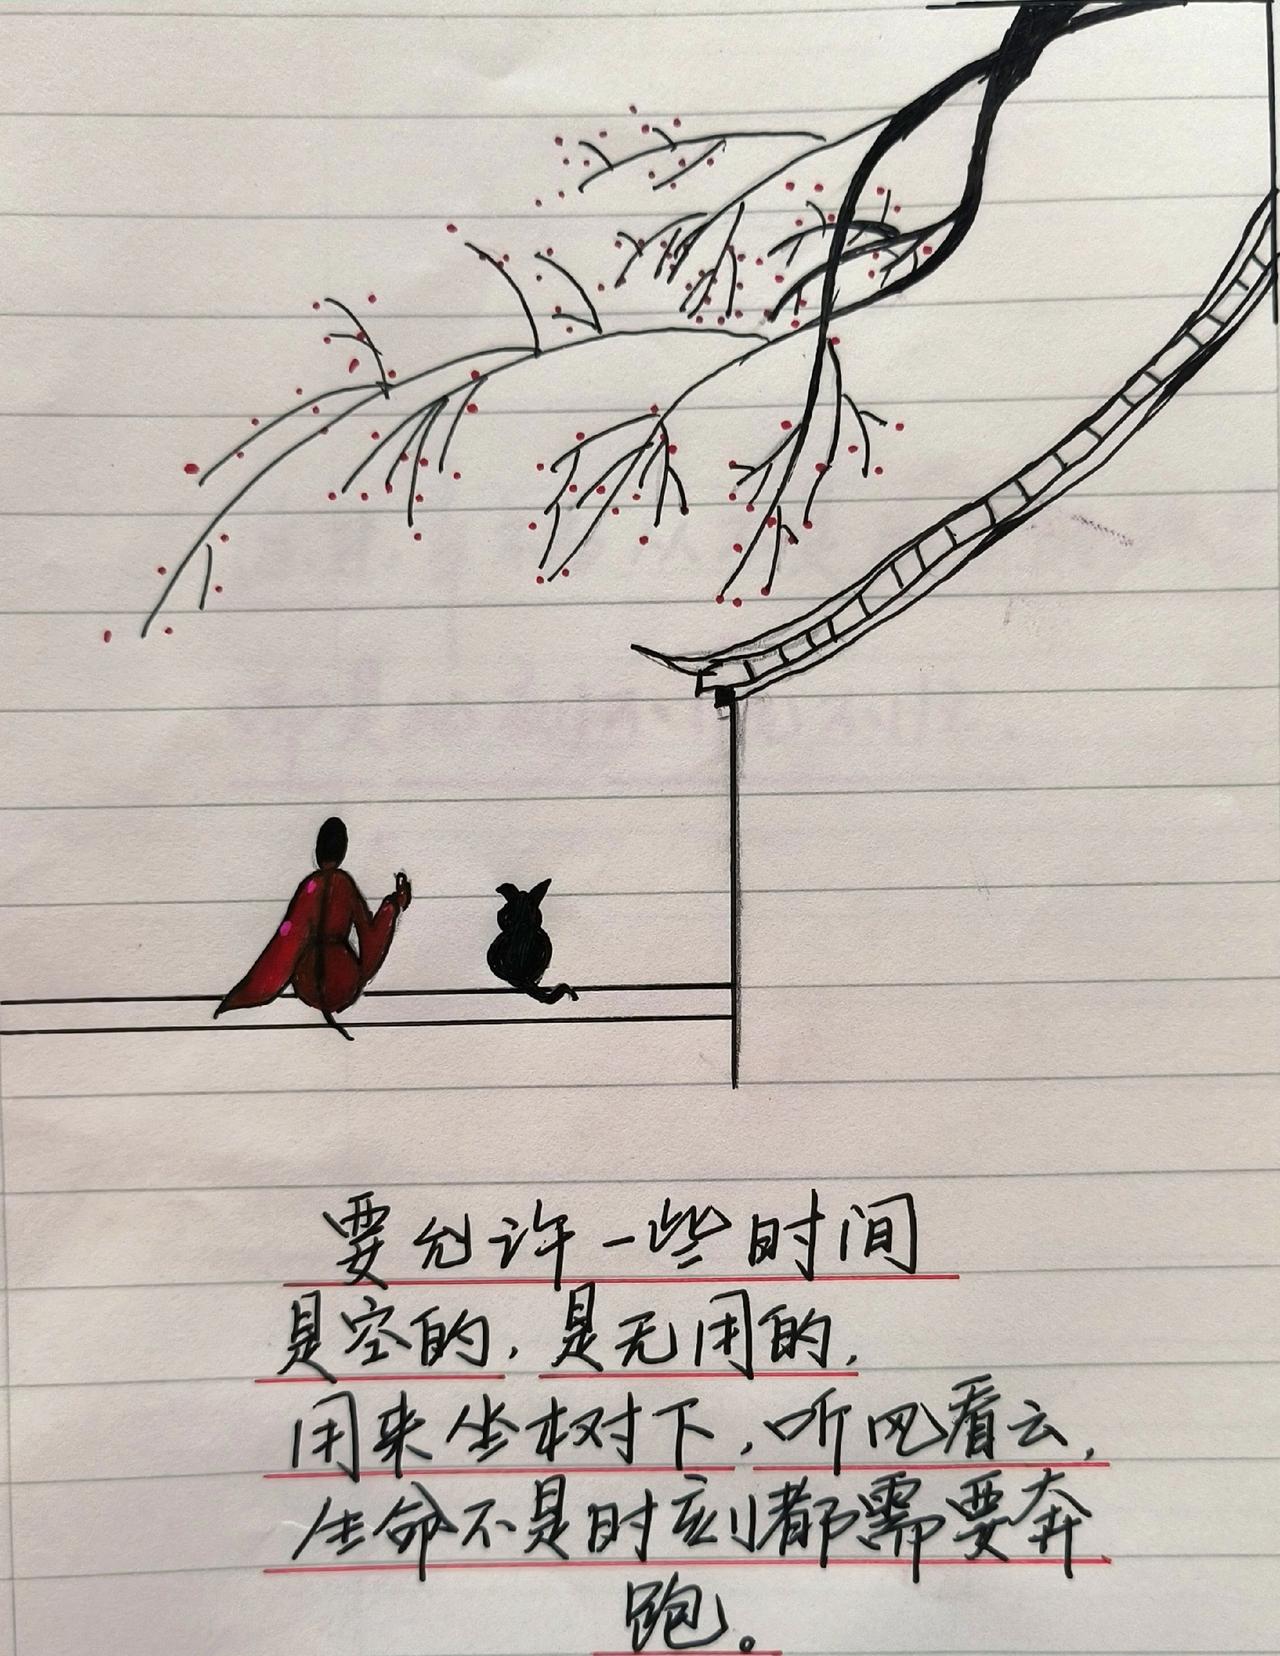 要允许一些时间
是空的，是无用的，
用来坐树下，听风看云，
生命不是时刻都需要奔
跑。